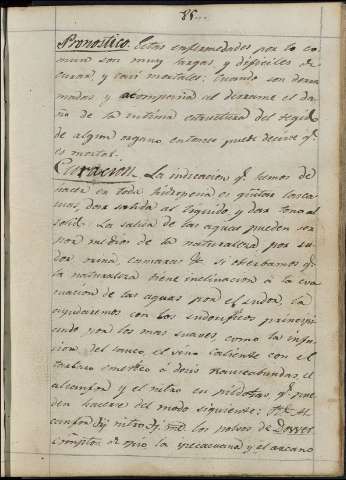 85...
Pronostico. Estas enfermedades por lo co-
mun son muy largas, y dificiles de
curar, y casi mortales: cuando son derra-
madas y acompaña al derrame el da-
ño de la intima estructura del tegido
de algun organo, entonces puede decirse q.e
es mortal.
Curacion. La indicacion q.e hemos de
hacer en toda hidropesia es quitar las cau-
sas, dar salida al liquido, y dar tono al
solido. La salida de las aguas pueden ser
por medios de la naturaleza por su-
dor, orina, camaras &c. si observamos q.e
la naturaleza tiene inclinacion à la eva-
cuacion de las aguas por el sudor, la
ayudaremos con los sudorificos principi-
ando por los mas suaves, como la infu-
sion del sauco, el vino caliente con el
tartaro emetico à dosis
alcanfor y el nitro en pildoras, q.e pue-
den hacerse del modo siguiente: R.e Al-
canfor nitro los polvos de Dover
de opio, la ipecacuana y el arcano